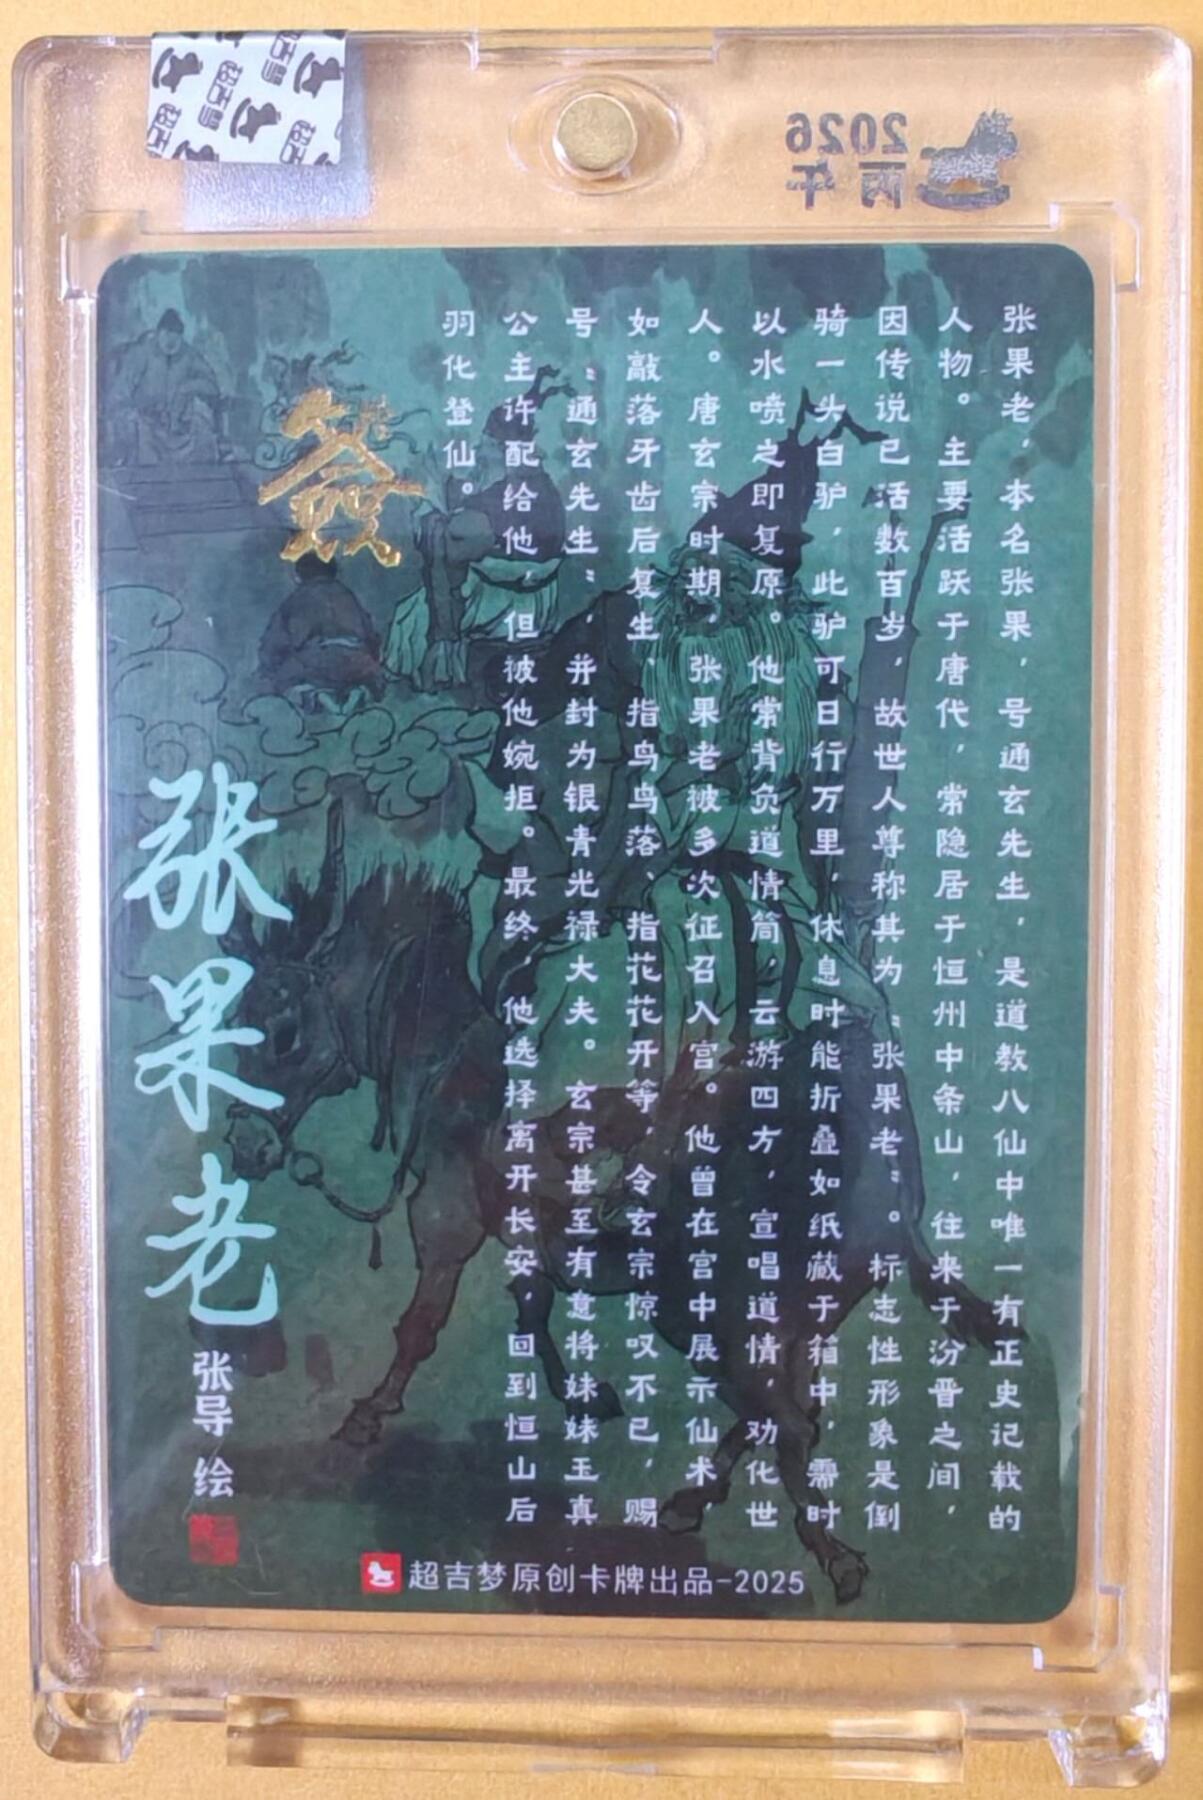 2026
丙午
张果老，本名张果，号通玄先生，是道教八仙中唯一有正史记载的
人物。主要活跃于唐代，常隐居于恒州中条山，往来于汾晋之间，
因传说已活数百岁，故世人尊称其为“张果老”。标志性形象是倒
骑一头白驴，此驴可日行万里，休息时能折叠如纸藏于箱中，需时
以水喷之即复原。他常背负道情筒，云游四方，宣唱道情，劝化世
人。唐玄宗时期，张果老被多次征召入宫。他曾在宫中展示仙术，
如敲落牙齿后复生、指鸟鸟落、指花花开等，令玄宗惊叹不已，赐
号“通玄先生”，并封为银青光禄大夫。玄宗甚至有意将妹妹玉真
公主许配给他，但被他婉拒。最终，他选择离开长安，回到恒山后
羽化登仙。
签
张果老
张导 绘
超吉梦原创卡牌出品-2025